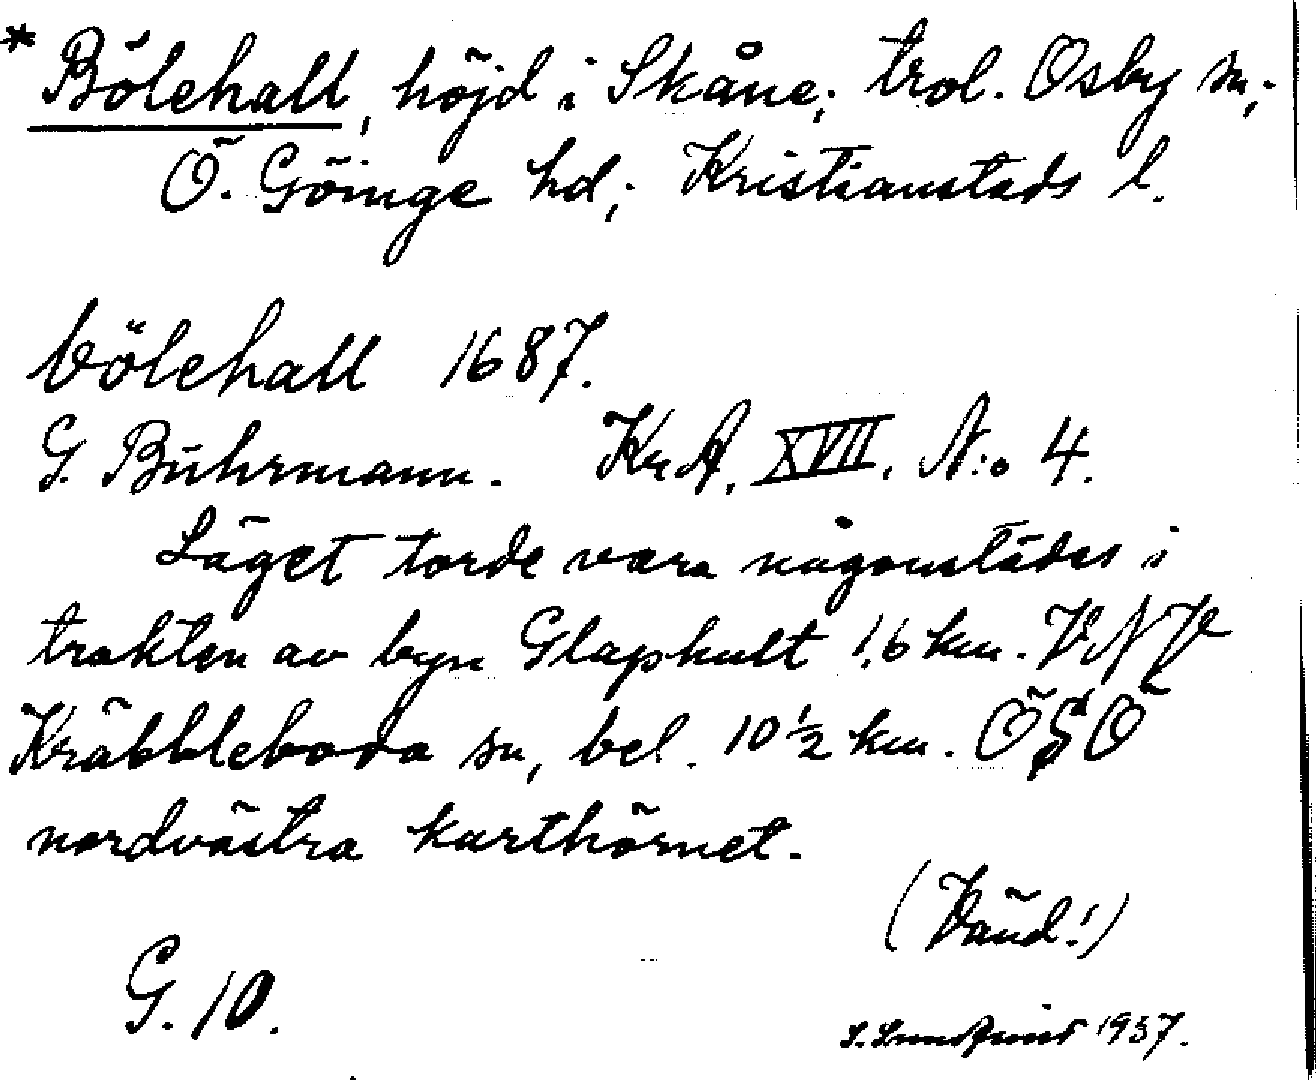 * Bölehall, höjd i Skåne; trol. Osby sn,;
Ö. Göinge hd,; Kristianstads l.
bölehall 1687.
G. Buhrmann. Kr.A. XVII. N:o 4.
Läget torde vara någonstädes i
trakten av byn Glaphult 1,6 km. VNV
Kräbbleboda sn, bel. 10 1/2 km. ÖSÖ
nordvästra karthörnet.
(Vänd!)
G. 10.
S. Lundquist 1937.